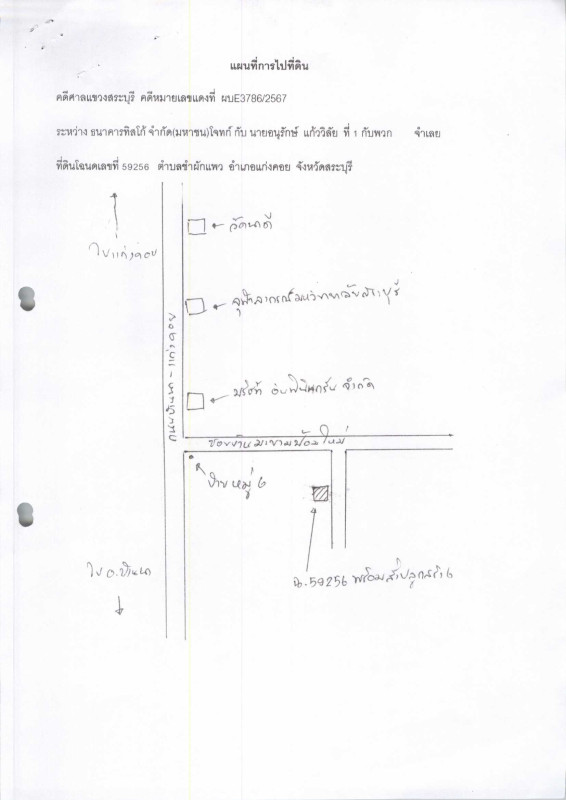 แผนที่การไปที่ดิน
คดีศาลแขวงสระบุรี คดีหมายเลขแดงที่ ผบE3786/2567
ระหว่าง ธนาคารทิสโก้ จำกัด(มหาชน)โจทก์ กับ นายอนุรักษ์ แก้ววิลัย ที่ 1 กับพวก จำเลย
ที่ดินโฉนดเลขที่ 59256 ตำบลชำผักแพว อำเภอแก่งคอย จังหวัดสระบุรี
วัดนาดี
ไปแก่งคอย
จุฬาลงกรณ์มหาวิทยาลัยสระบุรี
ถนนบ้านนา - แก่งคอย
บริษัท จำกัด
ป้ายหมู่ 6
ไป อ.บ้านนา
ฉ.59256 พร้อมสิ่งปลูกสร้าง